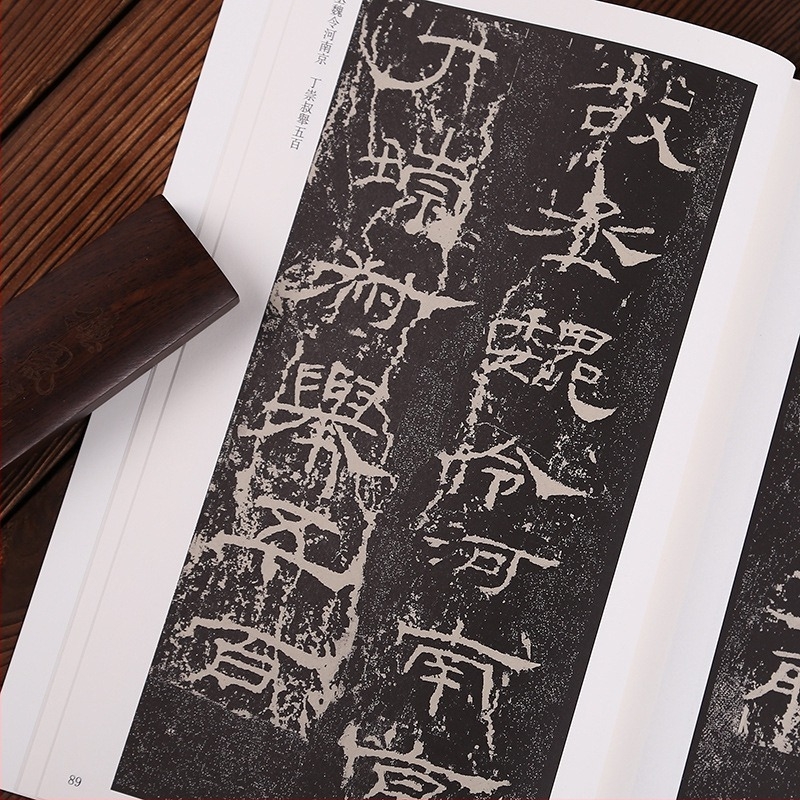 故丞魏令河南京
丁崇叔舉五百
丞魏令河南京　丁崇叔舉五百
89